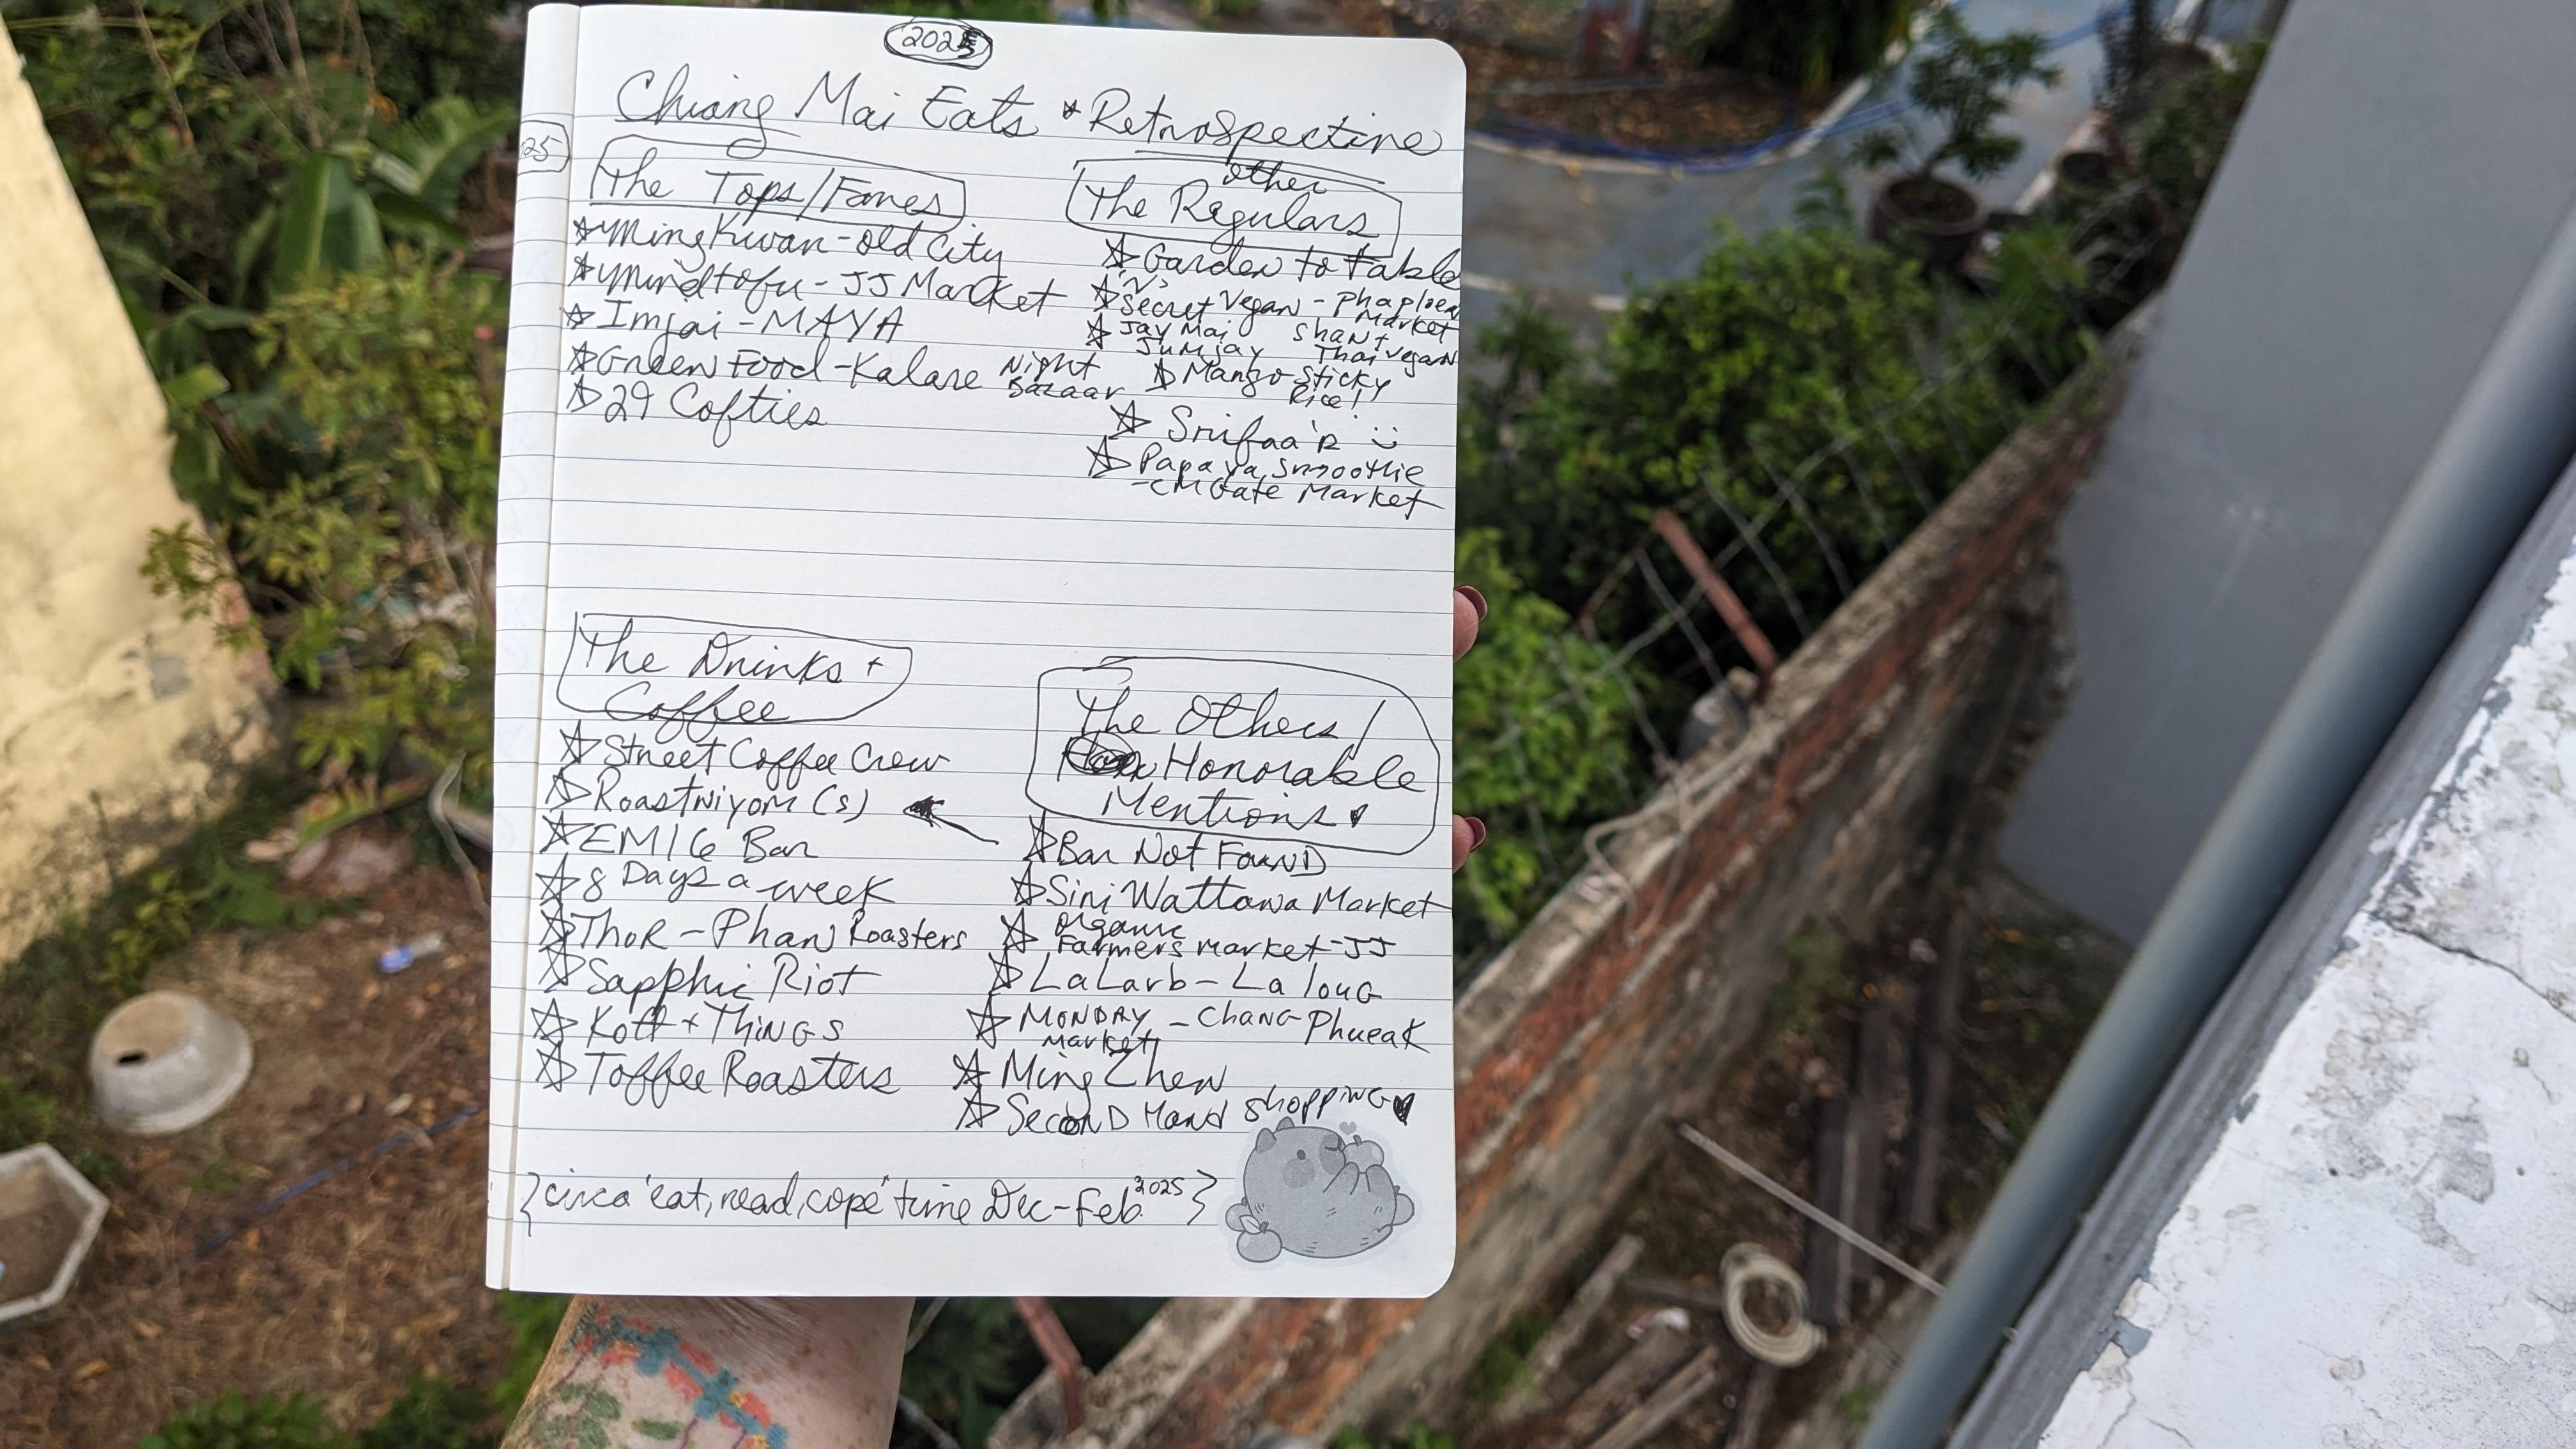 2025
Chiang Mai Eats * Retrospective
25
The Tops/Faves
Ming Kwan - Old City
Mindtofu - JJ Market
Imjai - MAYA
Green Food - Kalare Night Bazaar
29 Cofties
The other Regulars
Garden to table
"V"
Secret Vegan - Phaploen Market
Jay Mai Shan +
Jumjay Thai vegan
Mango Sticky
Rice!
Srifaa's :)
Papaya Smoothie
- CM Gate Market
The Drinks +
Coffee
Street Coffee Crew
Roastniyom (s)
EM16 Bar
8 Days a week
Thor - Phan Roasters
Sapphic Riot
Koff + Things
Toffee Roasters
The Others /
Honorable
Mentions
Bar Not Found
Siri Wattana Market
Organic
Farmers Market - JJ
LaLarb - La loug
Monday - Chang Phueak
Market
Ming Zhen
Second Hand Shopping
{circa 'eat, read, cope' time Dec - Feb 2025}